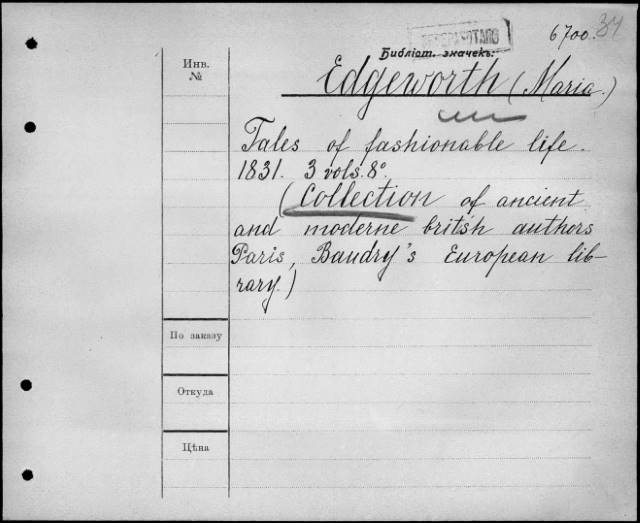 6700. 34
Библіот. значекъ:
Инв.
№
Edgeworth (Maria.)
Tales of fashionable life.
1831. 3 vols. 8°.
(Collection of ancient
and moderne british authors
Paris, Baudry's European lib-
rary.)
По заказу
Откуда
Цѣна